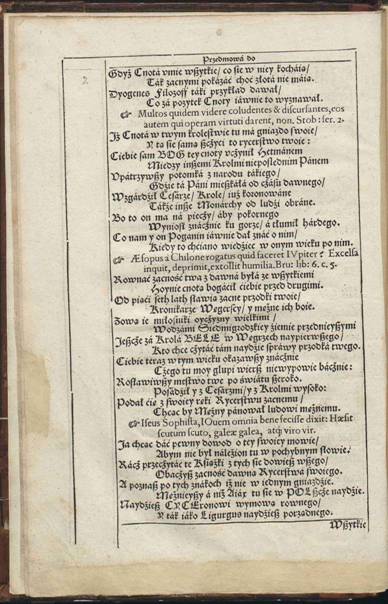 Przedmowá do
2
Gdyż Cnotá vmie wßytkie/ co sie w niey kocháią/
Ták zacnymi pokázáć choć złotá nie máią.
Dyogenes Filozoff táki przykłád dawał/
Co zá pozytek Cnoty iáwnie to wyznawał.
☞ Multos quidem videre coludentes & discursantes, eos
autem qui operam virtuti darent, non. Stob: ser. 2.
Iż Cnotá w twym krolestwie tu má gniazdo swoie/
Y tá sie sámá szczyci to rycerstwo twoie:
Ciebie sam BOG tey cnoty vczynił Hetmánem
Miedzy inßemi Krolmi nieposlednim Pánem
Vpátrzywßy potomká z narodu tákiego/
Gdzie tá Páni mießkáłá od czásu dawnego/
Wzgárdził Cesárze/ Krole/ iuż koronowáne
Tákże inße Monárchy od ludzi obráne.
Bo to on ma ná pieczy/ áby pokornego
Wyniosł znácznie ku gorze/ á tłumił hárdego.
Co nam y on Pogánin iáwnie dał znáć o nim/
Kiedy to chciano wiedzieć w onym wieku po nim.
☞ Æsopus a Chilone rogatus quid faceret IVpiter? Excelsa
inquit, deprimit, extollit humilia. Bru: lib: 6. c. 5.
Rownáć zacność twá z dawná byłá ze wßytkiemi
Hoynie cnotá bogáćił ciebie przed drugimi.
Od piąci seth lath sławiá zacne przodki twoie/
Kronikarze Węgerscy/ y mężne ich boie.
Zową ie miłosniki oyczyzny wielkimi/
Wodzámi Siedmigrodzkiey ziemie przednieyßymi
Jeßcże zá Krolá BELE w Węgrzech naypierwßego/
Kto chce czytáć tám naydzie spráwy przodká twego.
Ciebie teraz w tym wieku okazawßy znácznie
Czego tu moy głupi wierß niewypowie bácznie:
Rosłáwiwßy męstwo twe po światu szeroko.
Posádził y z Cesárzmi/ y z Krolmi wysoko:
Podał cie z swoiey ręki Rycerstwu zacnemu/
Chcąc by Mężny pánował ludowi mężnemu.
☞ Iseus Sophista, IOuem omnia bene fecisse dixit: Hæsit
scutum scuto, galeæ galea, atq; viro vir.
Ja chcąc dáć pewny dowod o tey swoiey mowie/
Abym nie był náleżion tu w pochybnym słowie.
Rácż przeczytáć te Ksiązki z tych sie dowiesz wßego/
Obaczyß zacność dawną Rycerstwá swoiego.
A poznaß po tych znákoch iż nie w iednym gniazdzie.
Mężnieyßy á niż Aiáx tu sie w POLßcze naydzie.
Naydzieß CYCEronowi wymową rownego/
Y ták iáko Ligurgus naydzieß porządnego.
Wßytkie